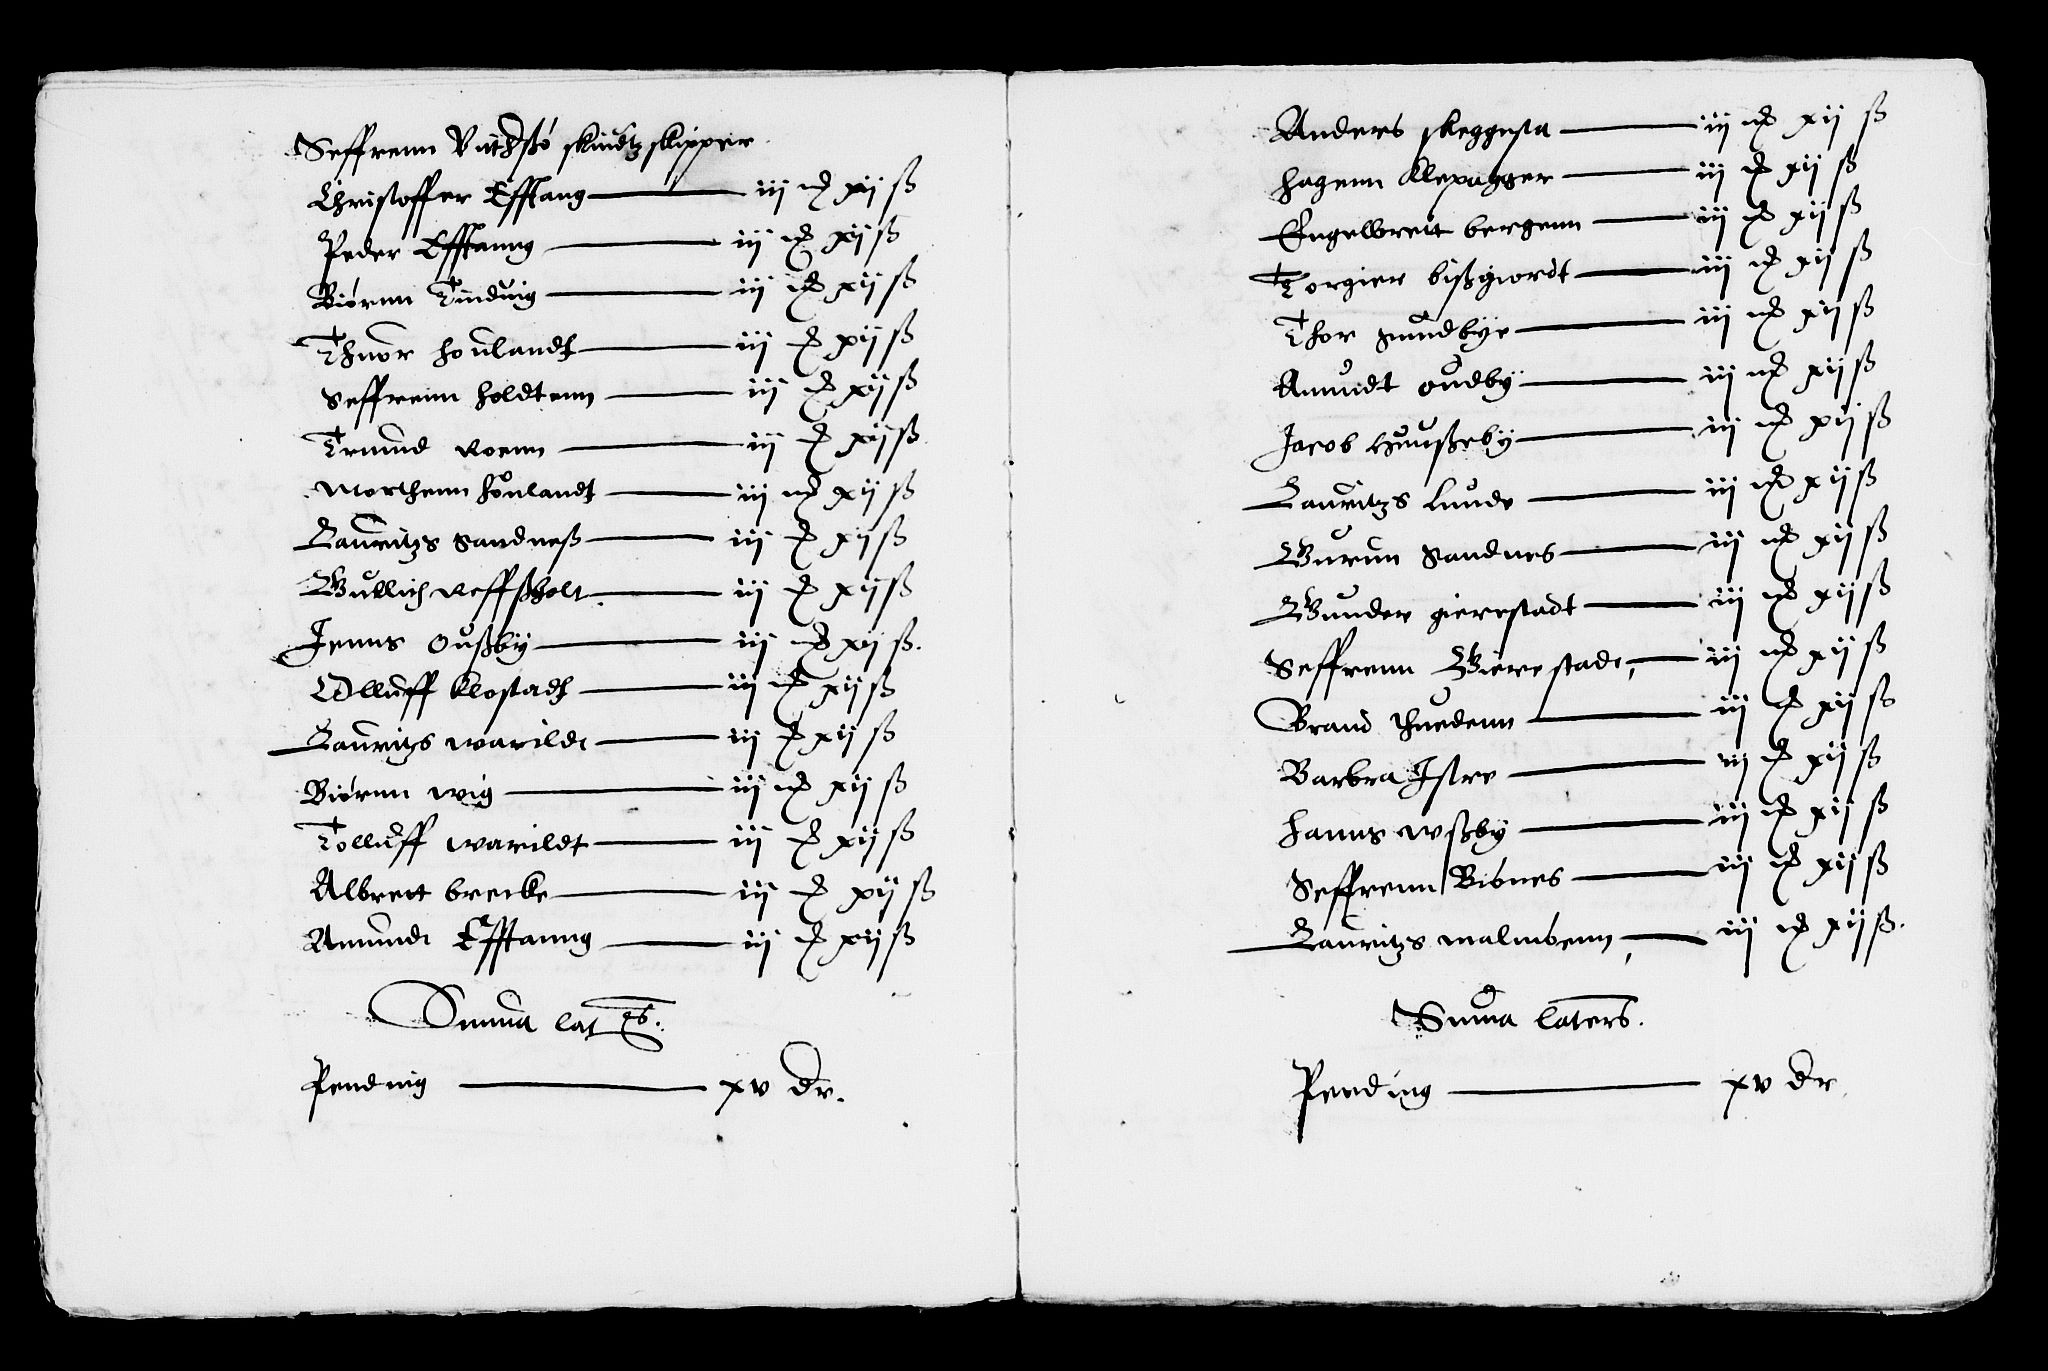 Seffrenn skindtz skipper
Christoffer Efftang iij xij ß
Peder Efftanng iij xij ß
Biörnn Tinduig iij xij ß
Thuor houlandt iij xij ß
Seffrenn holdtenn iij xij ß
Trund roenn iij xij ß
Morthenn houlandt iij xij ß
Lauritzs Sandneß iij xij ß
Gullich reffßholt iij xij ß
Jenns oußby iij xij ß.
Olluff klostadt iij xij ß
Lauritzs warildt iij xij ß
Biörnn wig iij xij ß
Tolluff warildt iij xij ß
Albrett brecke iij xij ß
Amundt Efftanng iij xij ß
Summa
Pending xv dr.
Anders skeggesta iij xij ß
hagenn Klepagger iij xij ß
Engelbrett bergenn iij xij ß
Torgier bißgiordt iij xij ß
Thor Sundbye iij xij ß
Amundt oudby iij xij ß
Jacob iij xij ß
Lauritzs Lunde iij xij ß
Gurun Sandnes iij xij ß
Gunder gierestadt iij xij ß
Seffrenn Gierestadt iij xij ß
Brand thuedenn iij xij ß
Barbra Istre iij xij ß
hanns wßby iij xij ß
Seffrenn Bisnes iij xij ß
Lauritzs malmbenn iij xij ß.
Suma laters.
Pending xv dr